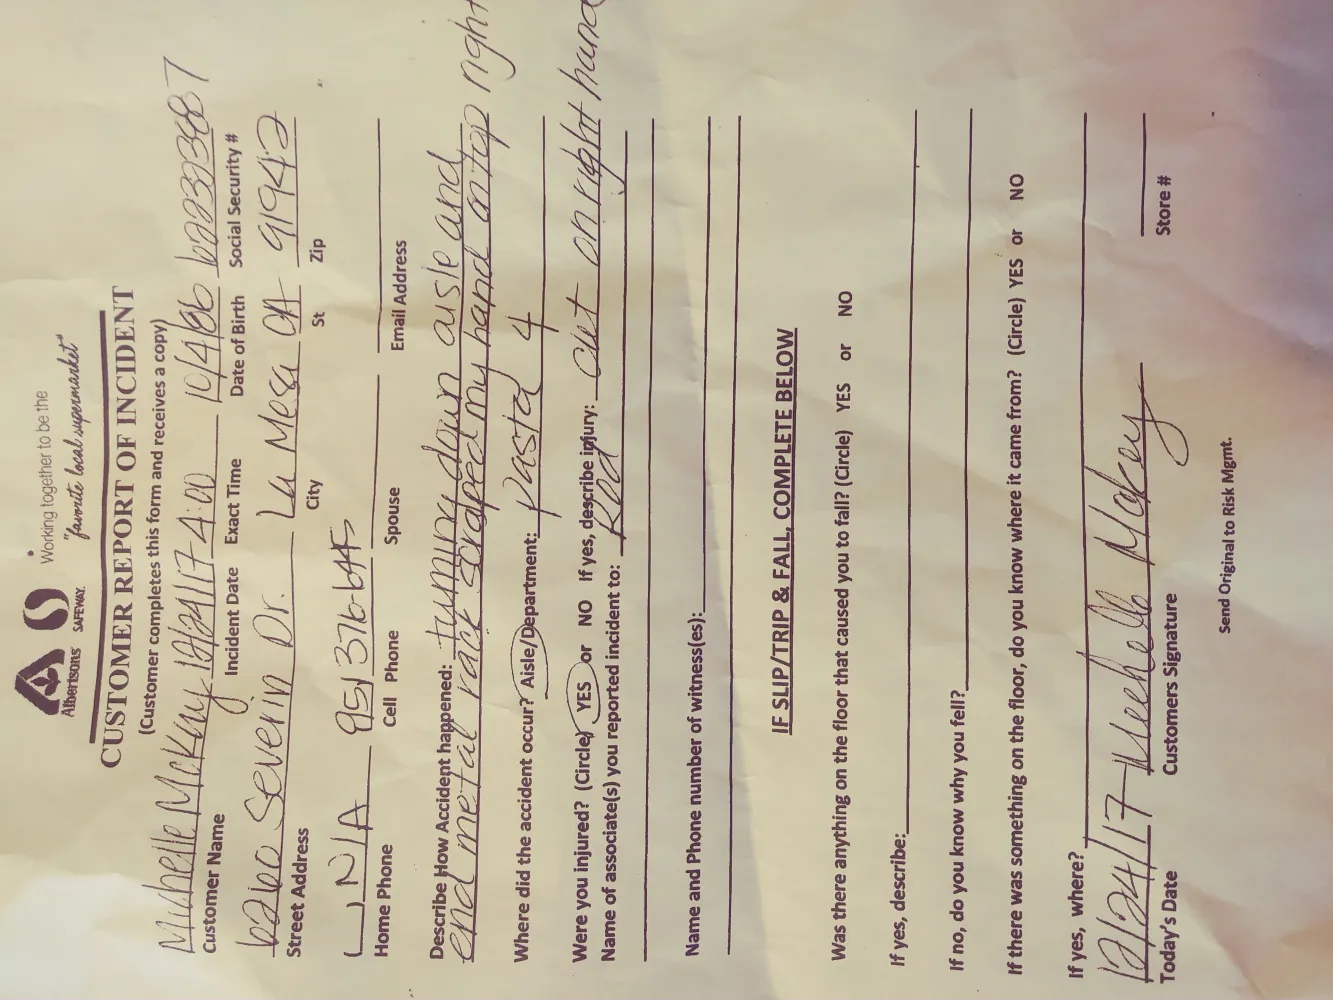 Albertsons SAFEWAY. Working together to be the
"favorite local supermarket"
CUSTOMER REPORT OF INCIDENT
(Customer completes this form and receives a copy)
Michelle McKay 12/24/17 4:00 10/4/86
Customer Name Incident Date Exact Time Date of Birth Social Security #
Severin Dr. La Mesa CA 91942
Street Address City St Zip
N/A
Home Phone Cell Phone Spouse Email Address
Describe How Accident happened: turning down aisle and
end metal rack scraped my hand on top right
Where did the accident occur? Aisle/Department: Pasta 4
Were you injured? (Circle) YES or NO If yes, describe injury: cut on right hand
Name of associate(s) you reported incident to: Rod
Name and Phone number of witness(es):
IF SLIP/TRIP & FALL, COMPLETE BELOW
Was there anything on the floor that caused you to fall? (Circle) YES or NO
If yes, describe:
If no, do you know why you fell?
If there was something on the floor, do you know where it came from? (Circle) YES or NO
If yes, where?
12/24/17 Michelle McKay
Today's Date Customers Signature Store #
Send Original to Risk Mgmt.